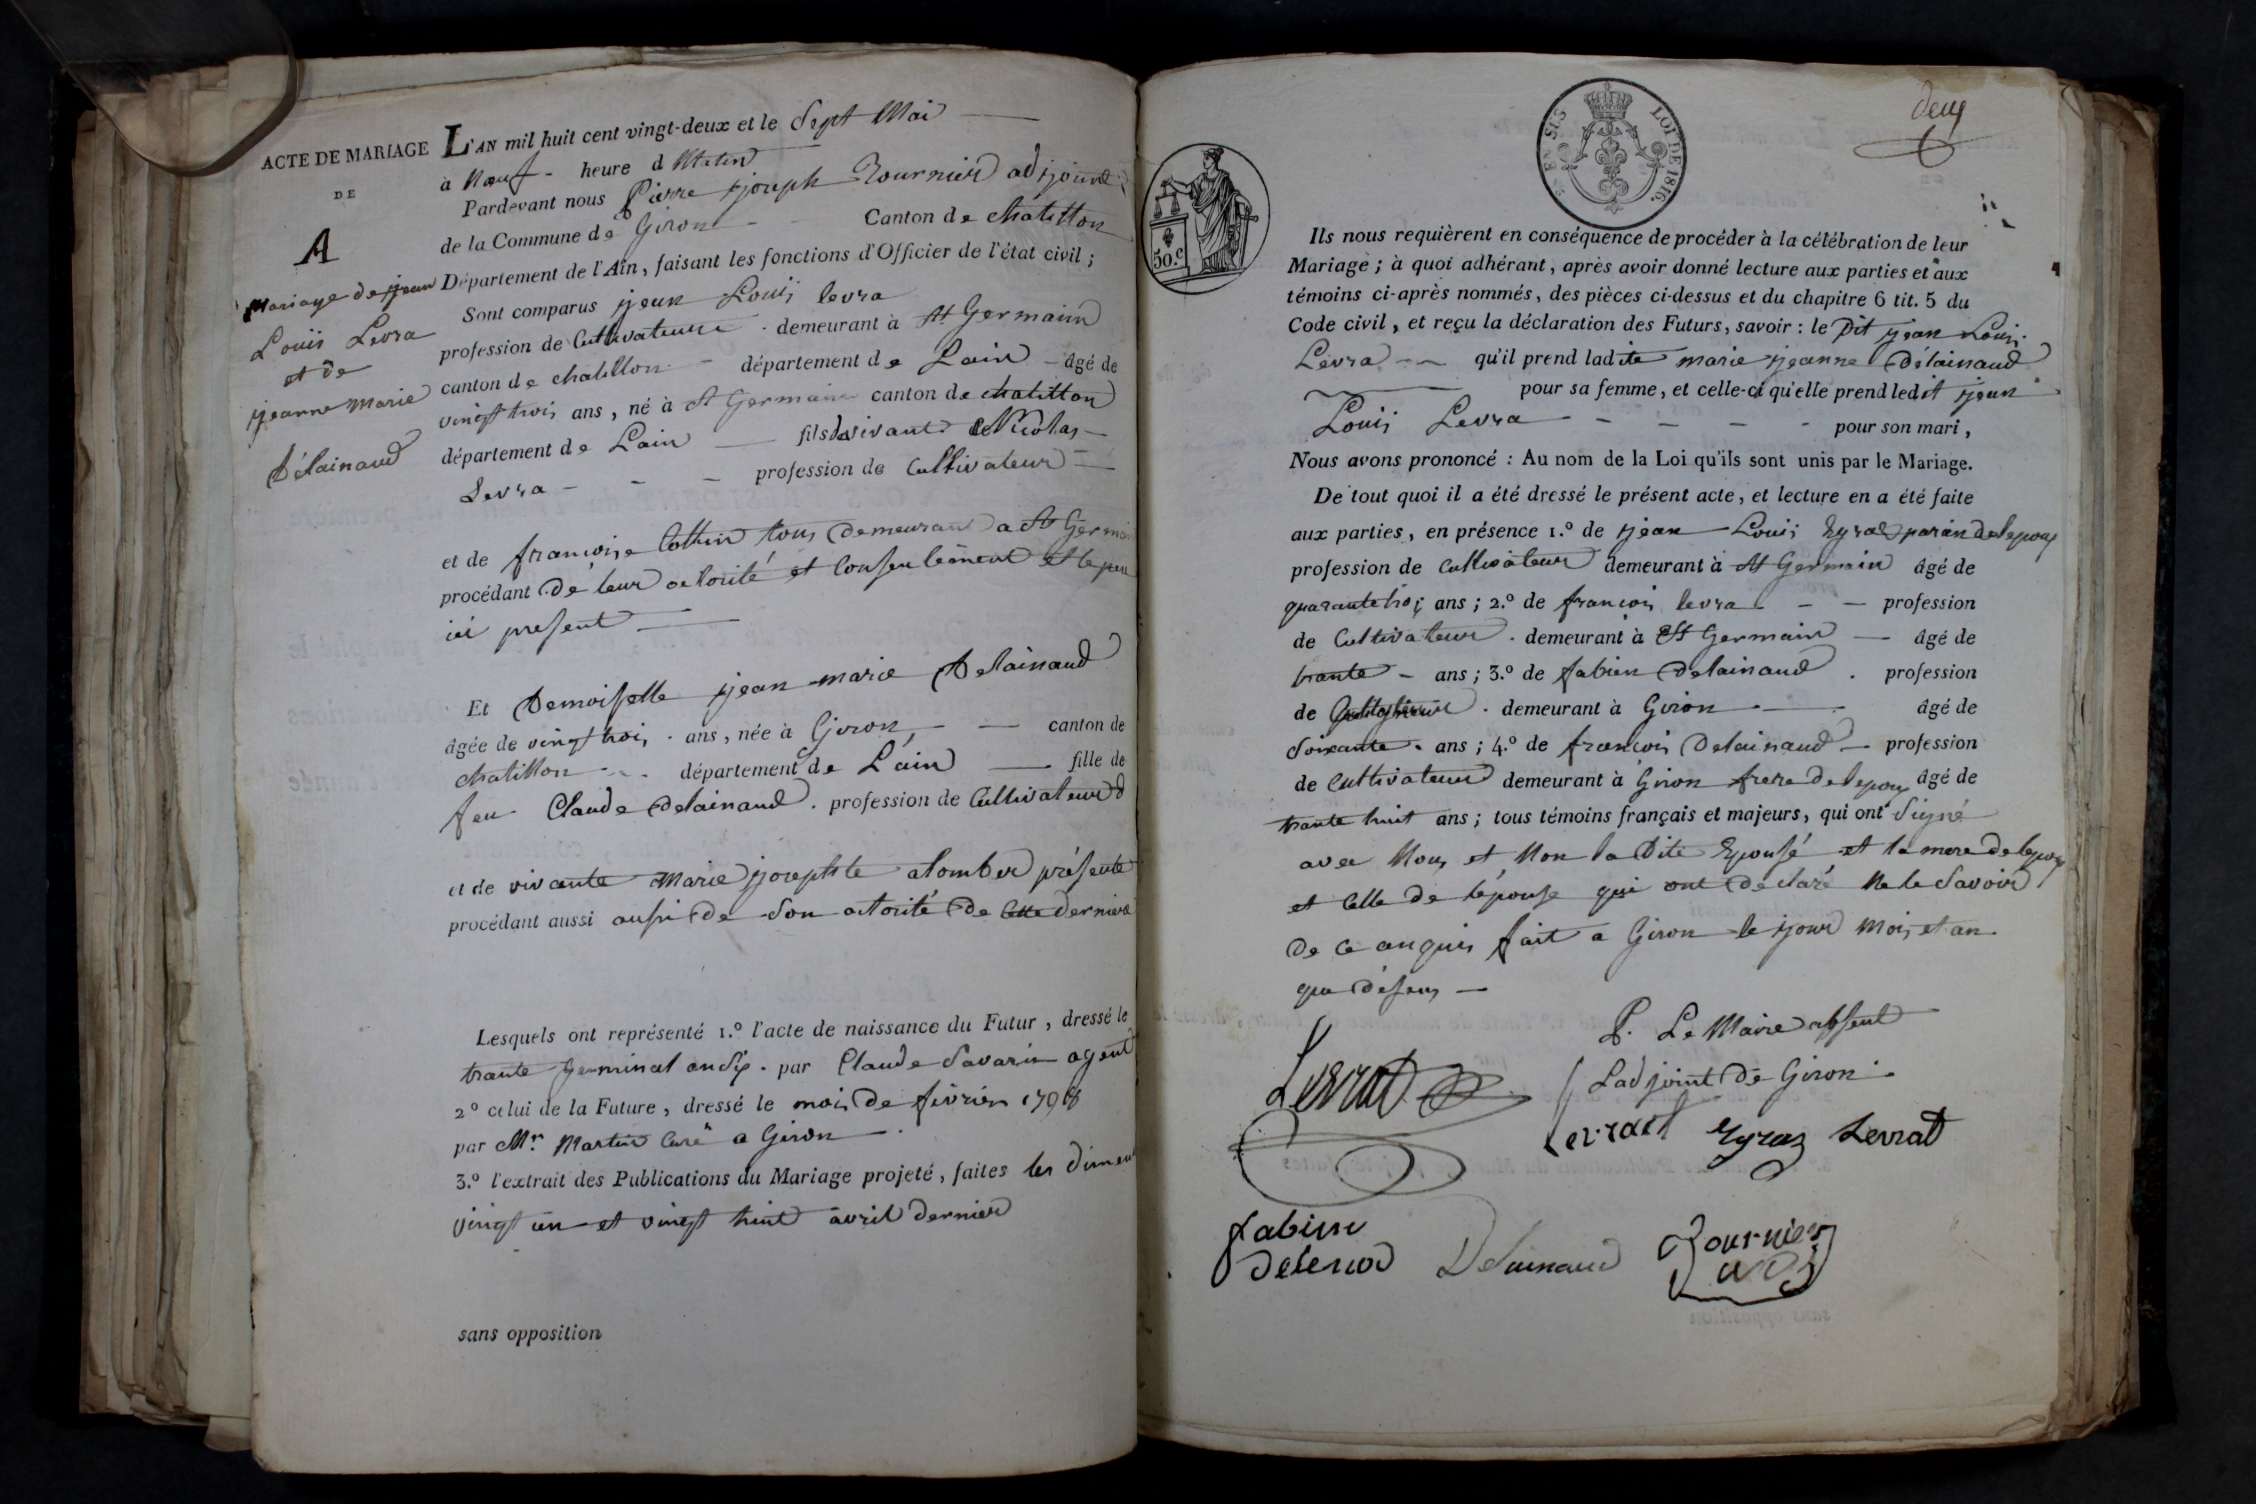 ACTE DE MARIAGE
DE
A
Mariage de jean
Louis Levra
et de
jeanne Marie
Delainaud
L'AN mil huit cent vingt-deux et le Sept Mai
à Neuf heure d Matin
Pardevant nous Pierre joseph Tournier adjoint
de la Commune de Giron Canton de chatillon
Département de l'Ain, faisant les fonctions d'Officier de l'état civil ;
Sont comparus jean Louis levra
profession de Cultivateur demeurant à St Germain
canton de chatillon département de Lain âgé de
vingt trois ans, né à St Germain canton de chatillon
département de Lain fils vivant de Nicolas
Levra profession de Cultivateur
et de francoise Cottin tous demeurant a St Germain
procédant de leur octorité et Consentement et le pere
ici present
Et Demoiselle jean marie Delainaud
âgée de vingt trois ans, née à Giron, canton de
chatillon département de Lain fille de
feu Claude Delainaud profession de Cultivateur
et de vivante Marie josephte alomber présente
procédant aussi aussi de Son actorité de Cette derniere
Lesquels ont représenté 1.º l'acte de naissance du Futur, dressé le
trante germinal an Six par Claude Savarin agent
2º celui de la Future, dressé le mois de février 1798
par Mr. Martin Curé a Giron
3.º l'extrait des Publications du Mariage projeté, faites les dimen
vingt un et vingt huit avril dernier
sans opposition
deux
SIS
LOI DE 1816.
50.c
Ils nous requièrent en conséquence de procéder à la célébration de leur
Mariage ; à quoi adhérant, après avoir donné lecture aux parties et aux
témoins ci-après nommés, des pièces ci-dessus et du chapitre 6 tit. 5 du
Code civil, et reçu la déclaration des Futurs, savoir : le Dit jean Louis
Levra qu'il prend ladite marie jeanne Delainaud
pour sa femme, et celle-ci qu'elle prend ledit jean
Louis Levra pour son mari,
Nous avons prononcé : Au nom de la Loi qu'ils sont unis par le Mariage.
De tout quoi il a été dressé le présent acte, et lecture en a été faite
aux parties, en présence 1.º de jean Louis Eyraz parain de lepoux
profession de Cultivateur demeurant à St Germain âgé de
quarante trois ans ; 2.º de francois levra profession
de Cultivateur demeurant à St Germain âgé de
trante ans ; 3.º de fabien Delainaud profession
de demeurant à Giron âgé de
Soixante ans ; 4.º de francois Delainaud profession
de Cultivateur demeurant à Giron frere de lepoux âgé de
trante huit ans ; tous témoins français et majeurs, qui ont Signé
avec Nous et Non la Dite Epousé et la mere de lepoux
et Celle de lépouse qui ont déclaré Ne le Savoir
de ce anquis fait a Giron le jour Mois et an
que désus
P. Le Maire absent
Ladjoint de Giron
Levrat
Levrat Eyraz Levrat
fabien
delenod Delainaud Tournier
adj